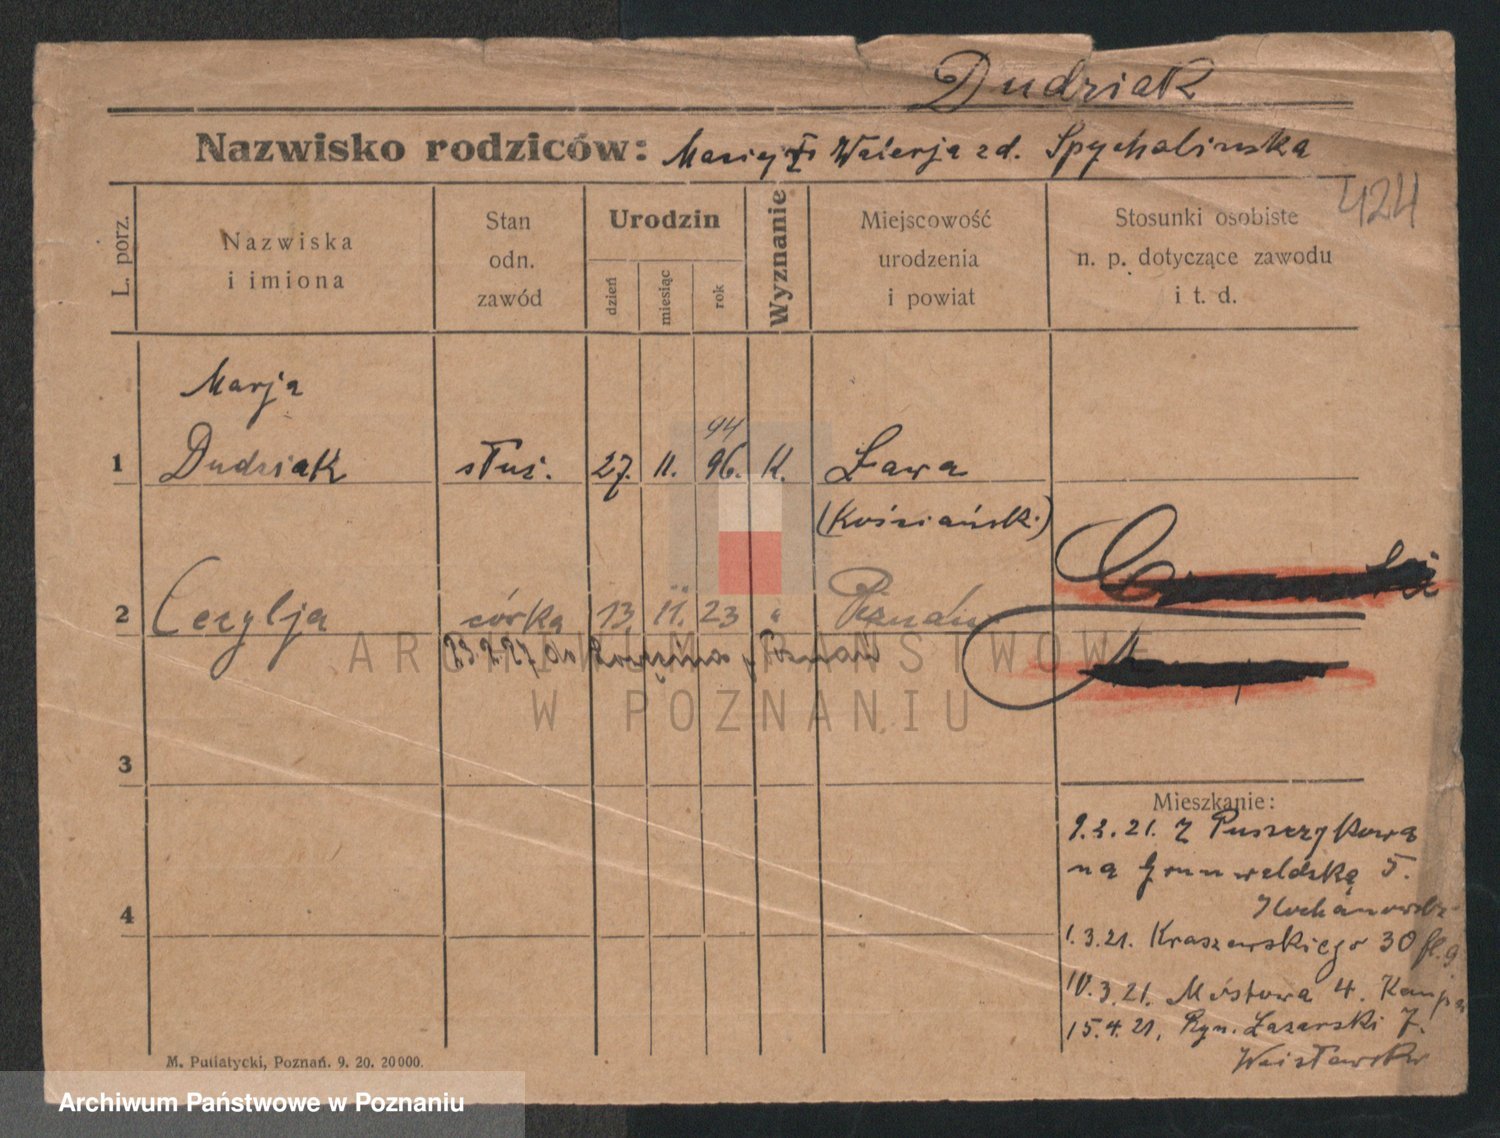 Dudziak
Nazwisko rodziców: Walerja zd. Spychalinska
424
L. porz.
Nazwiska
i imiona
Stan
odn.
zawód
Urodzin
dzień
miesiąc
rok
Wyznanie
Miejscowość
urodzenia
i powiat
Stosunki osobiste
n. p. dotyczące zawodu
i t. d.
Marja
94
1 Dudziak służ. 27. 11. 96. K. Ława
(Kościański)
2 Cecylja córka 13 11. 23 "
23.2.27 do Poznań
3
4
Mieszkanie:
9.2.21. Z Puszczykowa
na Grunwaldzką 5.
1.3.21. Kraszewskiego 30
10.3.21. Mostowa 4.
15.4.21. Ryn. Łazarski 7.
M. Putiatycki, Poznań. 9. 20. 20000.
ARCHIWUM PAŃSTWOWE
W POZNANIU
Archiwum Państwowe w Poznaniu